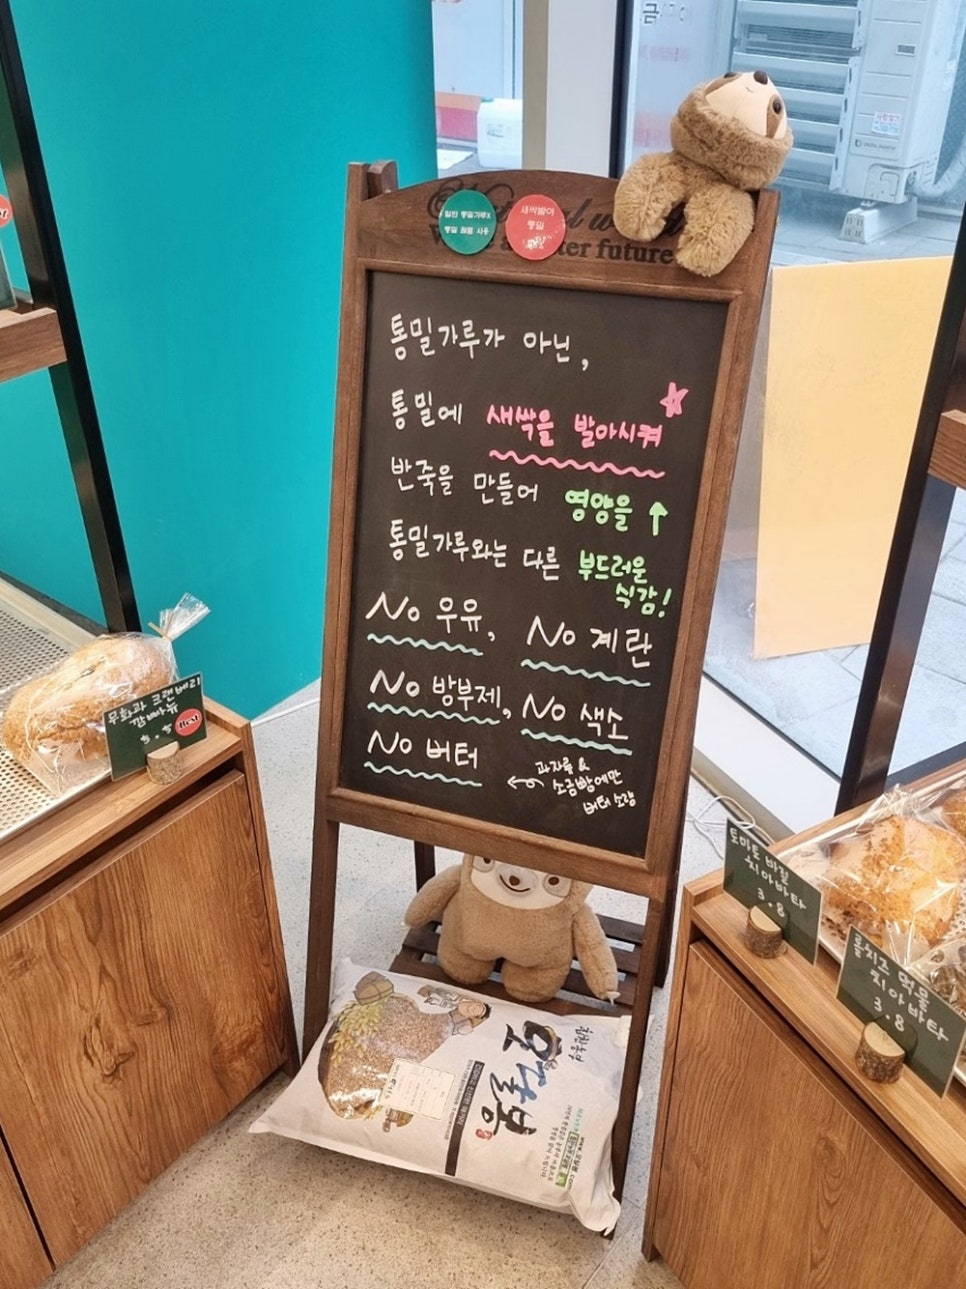 통밀가루X
통밀 원물 사용
새싹발아
통밀
ter future
통밀가루가 아닌,
통밀에 새싹을 발아시켜
반죽을 만들어 영양을 ↑
통밀가루와는 다른 부드러운
식감!
No 우유, No 계란
No 방부제, No 색소
No 버터
과자류 &
소금빵에만
버터 소량
무화과 크랜베리
깜빠뉴
5.5
Best
토마토 바질
치아바타
3.8
롤치즈 먹물
치아바타
3.8